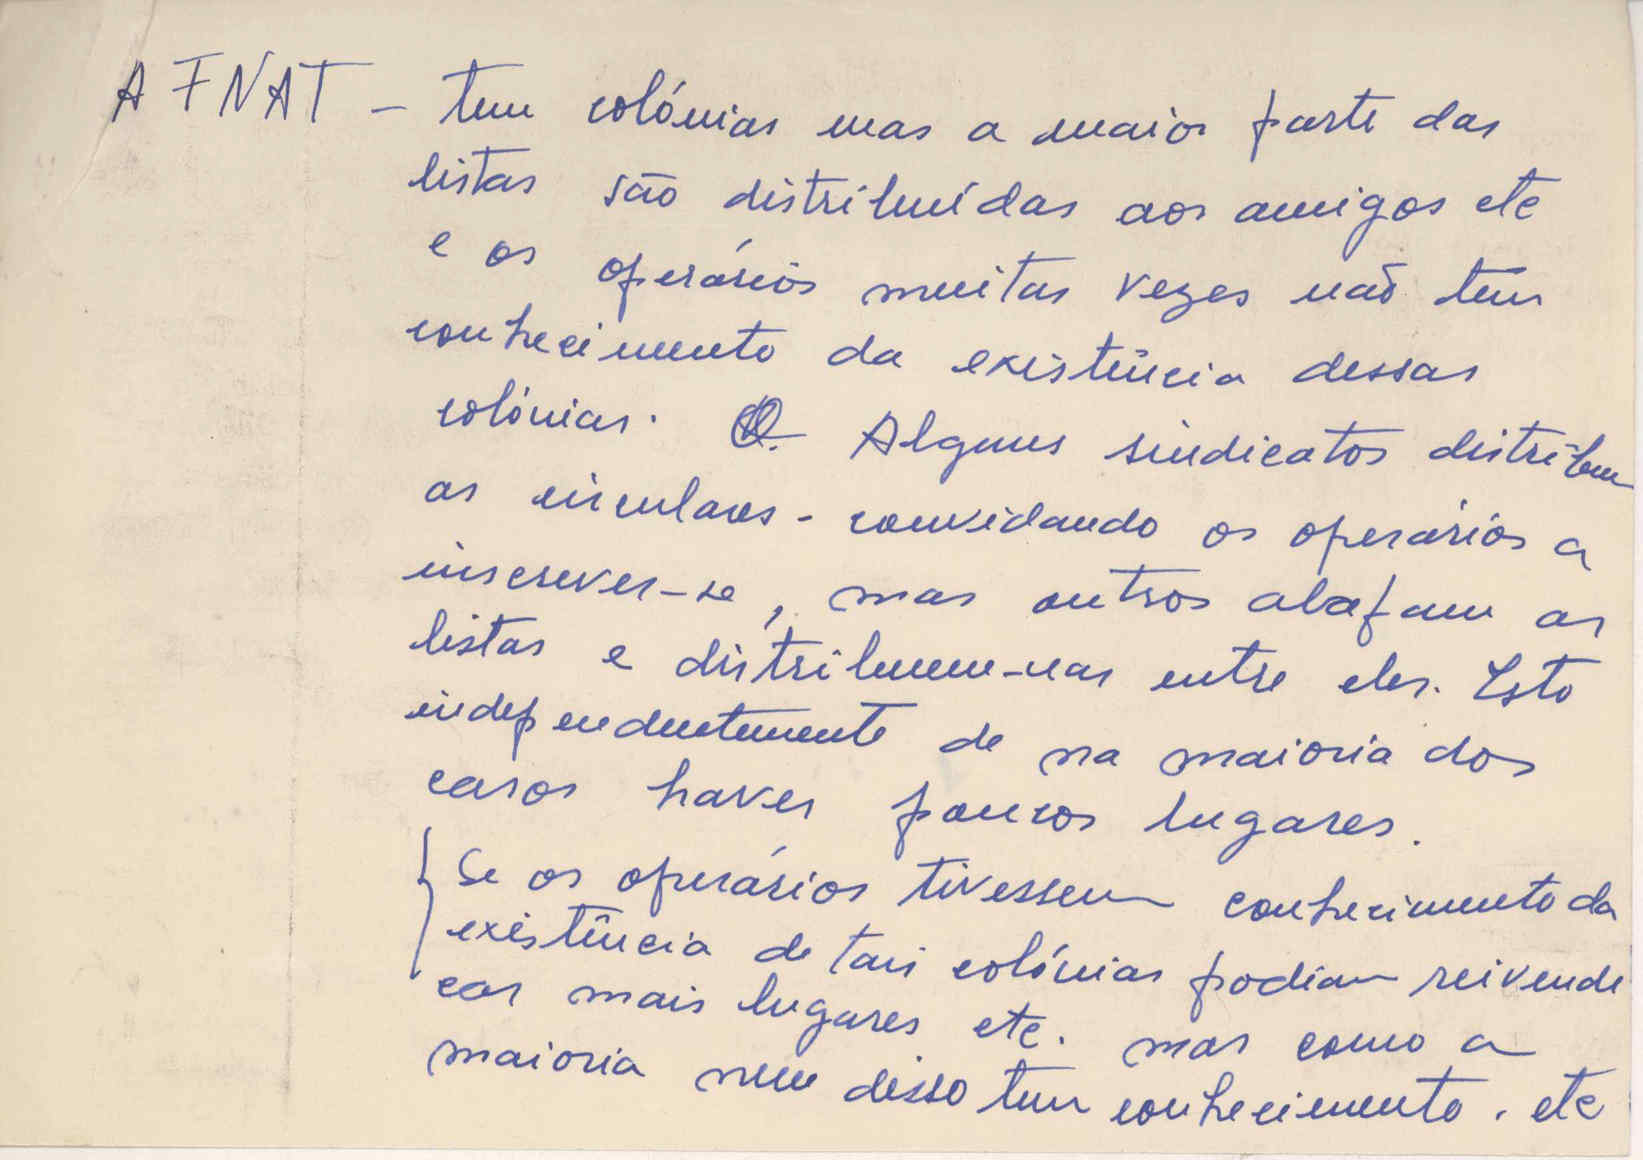 A FNAT - tem colónias mas a maior parte das
listas são distribuídas aos amigos etc
e os operários muitas vezes não tem
conhecimento da existência dessas
colónias. Alguns sindicatos distribem
as circulares - convidando os operários a
inscrever-se, mas outros abafam as
listas e distribuem-nas entre eles. Isto
independentemente de na maioria dos
casos haver poucos lugares.
Se os operários tivessem conhecimento da
existência de tais colónias podiam reivendi
car mais lugares etc. mas como a
maioria nem disso tem conhecimento. etc